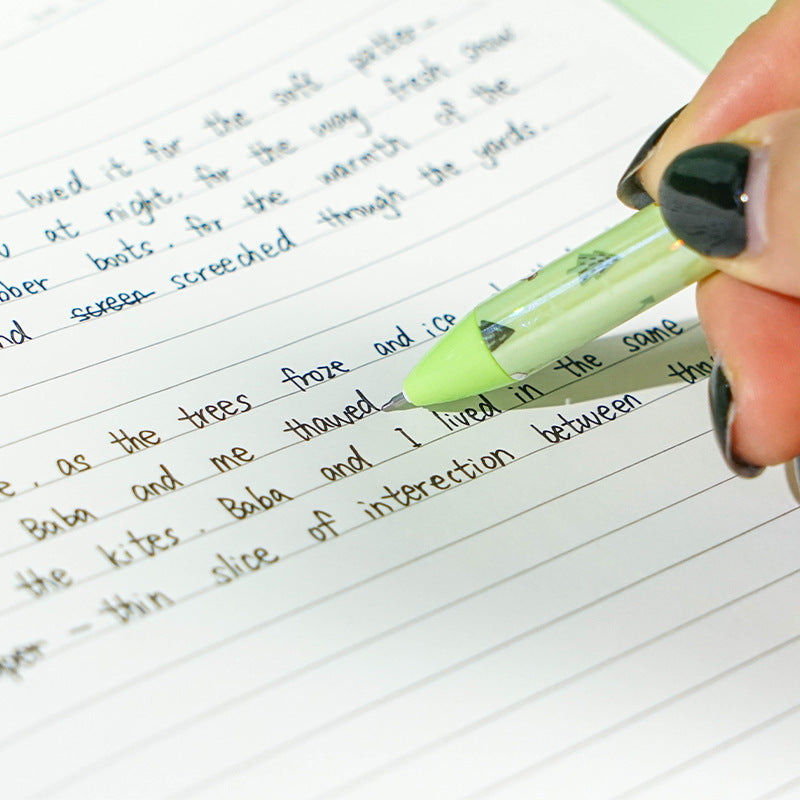 loved it for the soft patter-
at night. for the way fresh snow
boots. for the warmth of the
screen screeched through the yards.
as the trees froze and ice
Baba and me thawed
the kites. Baba and I lived in the same
- thin slice of interection between